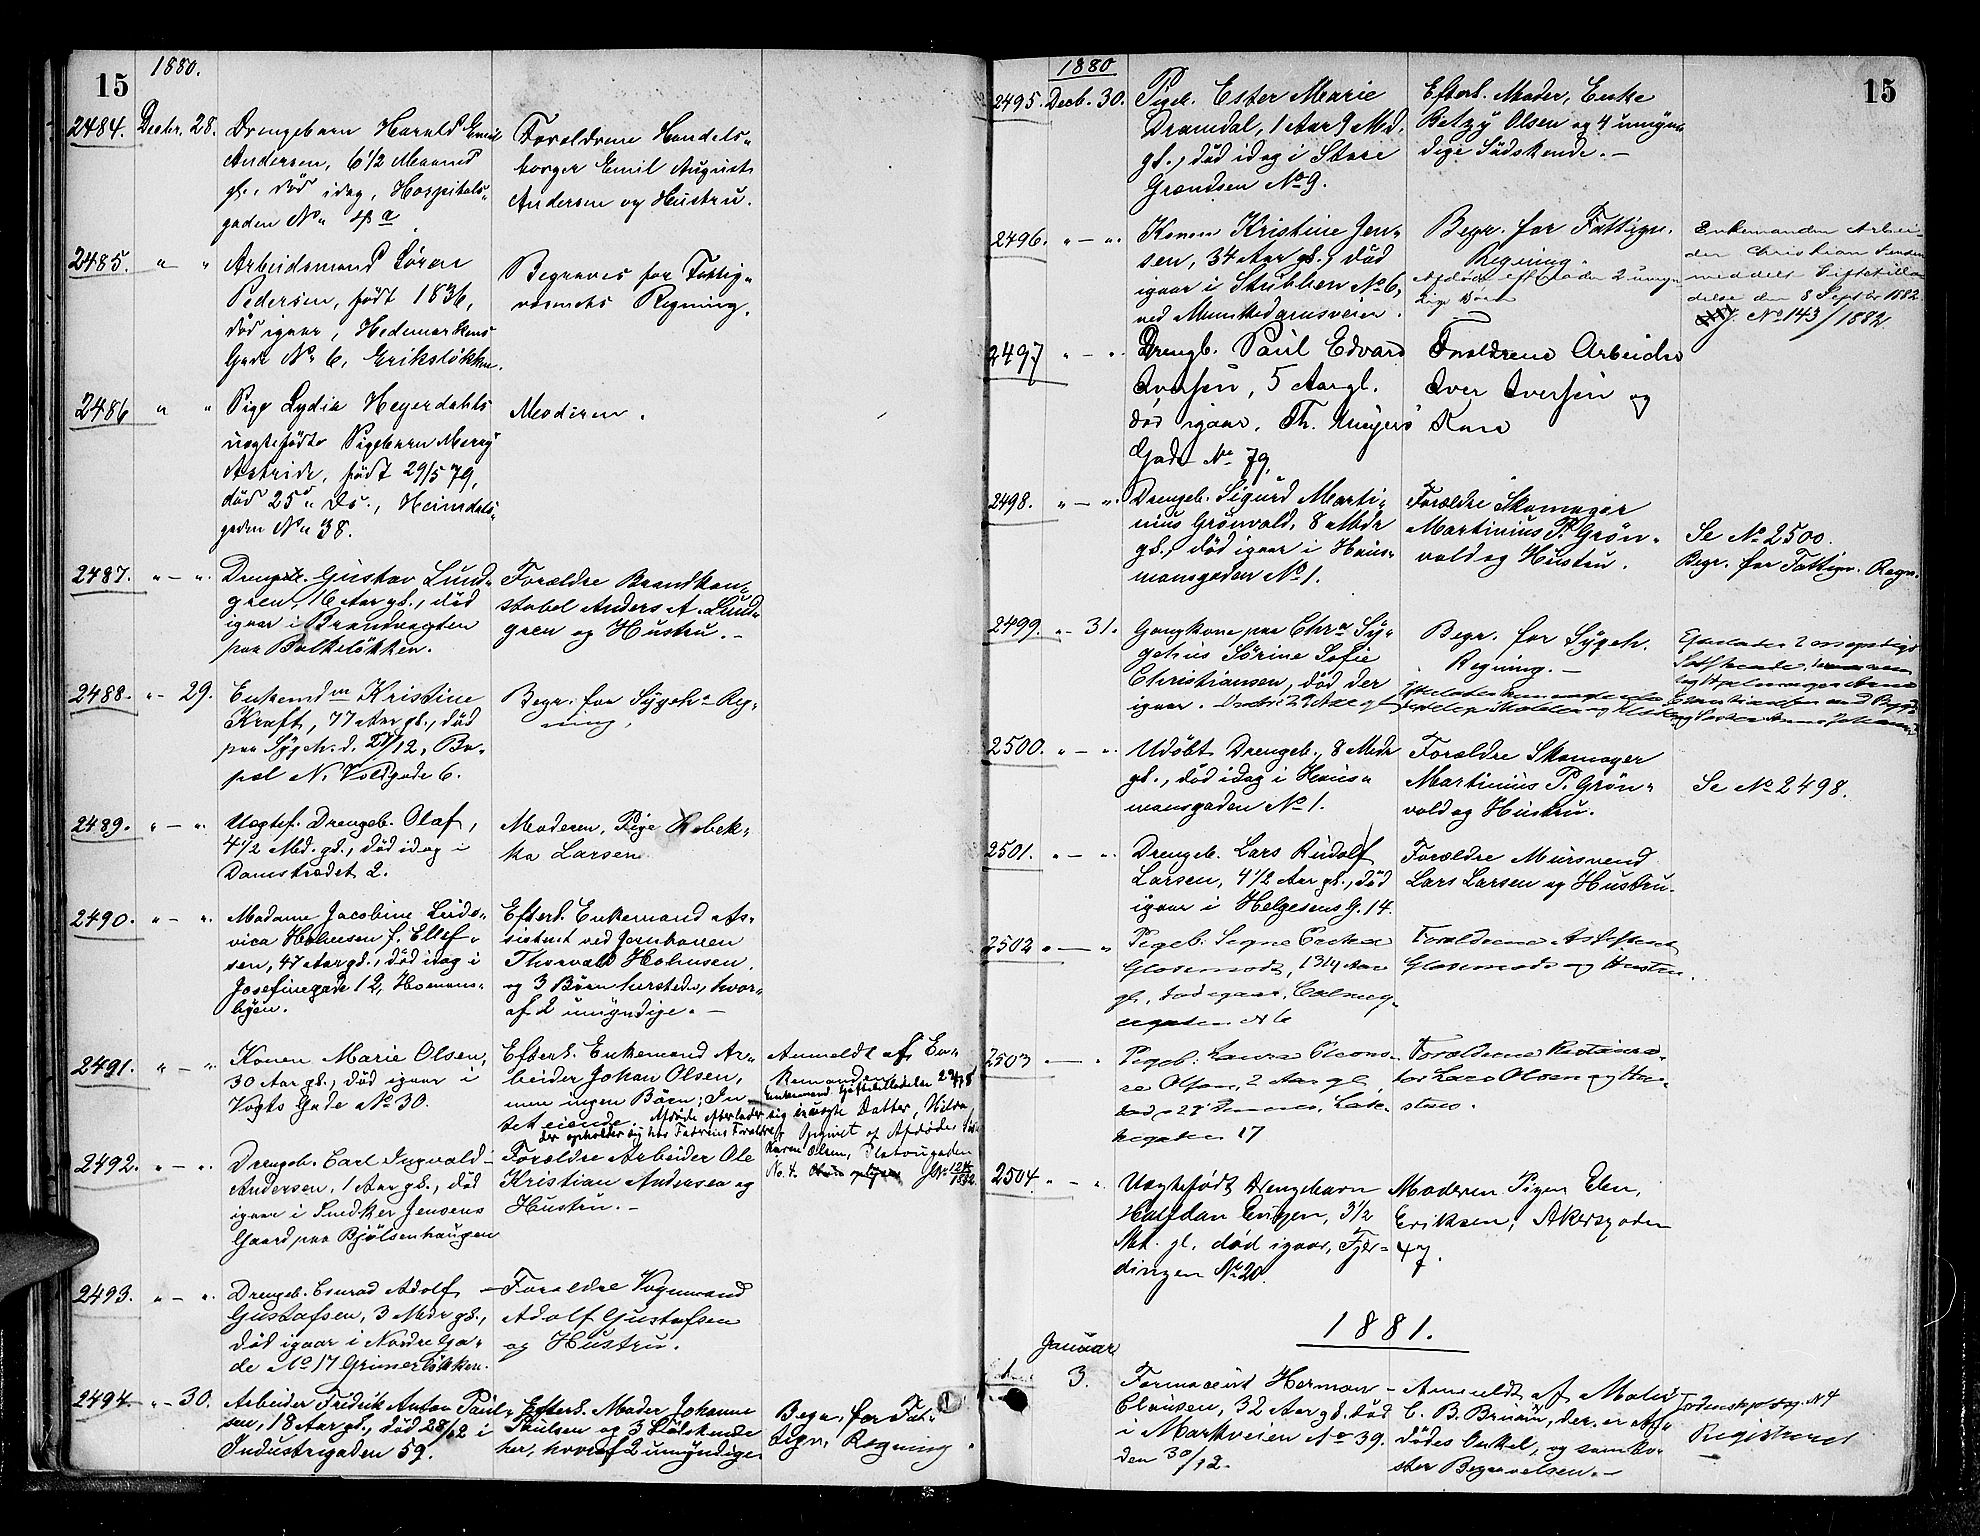 15
1880.
2484. Decbr. 28. Drengebarn Harald Emil
Andersen, 6 1/2 Maaned
gl., død idag, Hospitals-
gaden No
Forældrene Handels-
borger Emil August
Andersen og Hustru.
2485. " " Arbeidsmand Søren
Pedersen, født 1836,
død igaar, Hedemarkens
Gade No 6, Eriksløkken.
Begraves for Fattig-
væsenets Regning.
2486 " " Pige Lydia Heyerdahls
uægtefødte Pigebarn
Astride, født 29/5 79,
død 25d ds., Heimdals-
gaden No 38.
Moderen.
2487. " - " Drengeb. Gustav Lund-
gren, 16 Aar gl., død
igaar i Brandvagten
paa Balkeløkken.
Forældre Brandkon-
stabel Anders A. Lund-
gren og Hustru. -
2488. " - 29. Enkemdm Kristine
Kraft, 77 Aar gl., død
paa Sygeh. d. 27/12, Bo-
pæl N. Voldgade 6.
Begr. for Sygeh. Reg-
ning.
2489. " - " Uægtef. Drengeb. Olaf,
4 1/2 Md. gl., død idag i
Damstrædet 2.
Moderen, Pige Rebek-
ka Larsen
2490. " - " Madame Jacobine Ludo-
vica Holmsen f. Ellef-
sen, 47 Aar gl., død idag i
Josefinegade 12, Homans-
byen.
Efterl. Enkemand As-
sistent ved Jernbanen
Thorvald Holmsen
og 3 Børn hersteds, hvor-
af 2 umyndige. -
2491. " - " Konen Marie Olsen,
30 Aar gl., død igaar i
Vogts Gade No 30.
Efterl. Enkemand Ar-
beider Johan Olsen,
men ingen Børn; In-
tet eiende.
Anmeldt af En-
kemanden
Afdøde efterlader sig uægte Datter,
der opholder sig hos Faderens Forældre
Karen Olsen, Platougaden
No. 4.
2492. " - " Drengeb. Carl Ingvald
Andersen, 1 Aar gl., død
igaar i Snedker Jensens
Gaard paa Bjølsenhaugen
Forældre Arbeider Ole
Kristian Andersen og
Hustru. -
2493. " - " Drengeb. Conrad Adolf
Gustafsen, 3 Mdr gl.,
død igaar i Nordre Ga-
de No 17 Grünerløkken.
Forældre Vognmand
Adolf Gustafsen
og Hustru.
2494. " - 30. Arbeider Fredrik Anton Paul-
sen, 18 Aar gl., død 28/12 i
Industrigaden 59.
Efterl. Moder Johanne
Paulsen og 3 Sødskende
her, hvoraf 2 umyndige.
Begr. for Fat-
tigv. Regning.
15
1880
2495. Decb. 30. Pigeb. Ester Marie
Dramdal, 1 Aar 9 Md.
gl., død idag i Store
Grændsen No 9.
Efterl. Moder, Enke
Betzy Olsen og 4 umyn-
dige Sødskende. -
2496. " - " Konen Kristine Jen-
sen, 34 Aar gl., død
igaar i Stubben No 6,
ved Munkedamsveien.
Begr. for Fattigv.
Regning.
Afdøde efterlader 2 umyn-
dige Børn
Enkemanden Arbei-
der Christian Jensen
meddelt Giftetilla-
delse den 8 Septbr 1882.
J. No 143/1882
2497 " - " Drengb. Paul Edvard
Iversen, 5 Aar gl.
død igaar, Th. Meyers
Gade No 79,
Forældrene Arbeider
Iver Iversen og
Kone
2498. " - " Drengeb. Sigurd Marti-
nius Grønvold, 8 Mdr
gl., død igaar i Haus-
mansgaden No 1.
Forældre Skomager
Martinius P. Grøn-
vold og Hustru.
Se No 2500.
Begr. for Fattigv. Regn.
2499. " - 31. Gangkone paa Chra Sy-
gehus Sørine Sofie
Christiansen, død der
igaar.
Begr. for Sygeh.
Regning. -
2500. " - " Udøbt Drengeb., 8 Mdr
gl., død idag i Haus-
mansgaden No 1.
Forældre Skomager
Martinius P. Grøn-
vold og Hustru.
Se No 2498.
2501. " - " Drengeb. Lars Rudolf
Larsen, 4 1/2 Aar gl., død
igaar i Helgesens G. 14.
Forældre Mursvend
Lars Larsen og Hustru.
2502 " - " Pigeb. Signe
1 3/4 Aar
gl., død igaar,
Forældrene
og Hustru.
2503 - " Pigeb. Laura
Olsen, 2 Aar gl.
17
Forældrene Restaura-
tør Lars Olsen og Hu-
stru.
2504 " - " Uægtefødt Drengebarn
Halfdan 3 1/2
Md. gl. død igaar, Fjer-
dingen No 20.
Moderen Pigen Elen
Eriksen, Akersgaden
47.
1881.
Januar
1. 3. Farmaceut Herman
Clausen, 32 Aar gl. død
i Markveien No 39.
den 30/12.
Anmeldt af Maler
C. B. Bruun, der er Af-
dødes Onkel, og bekos-
ter Begravelsen. -
Registreret